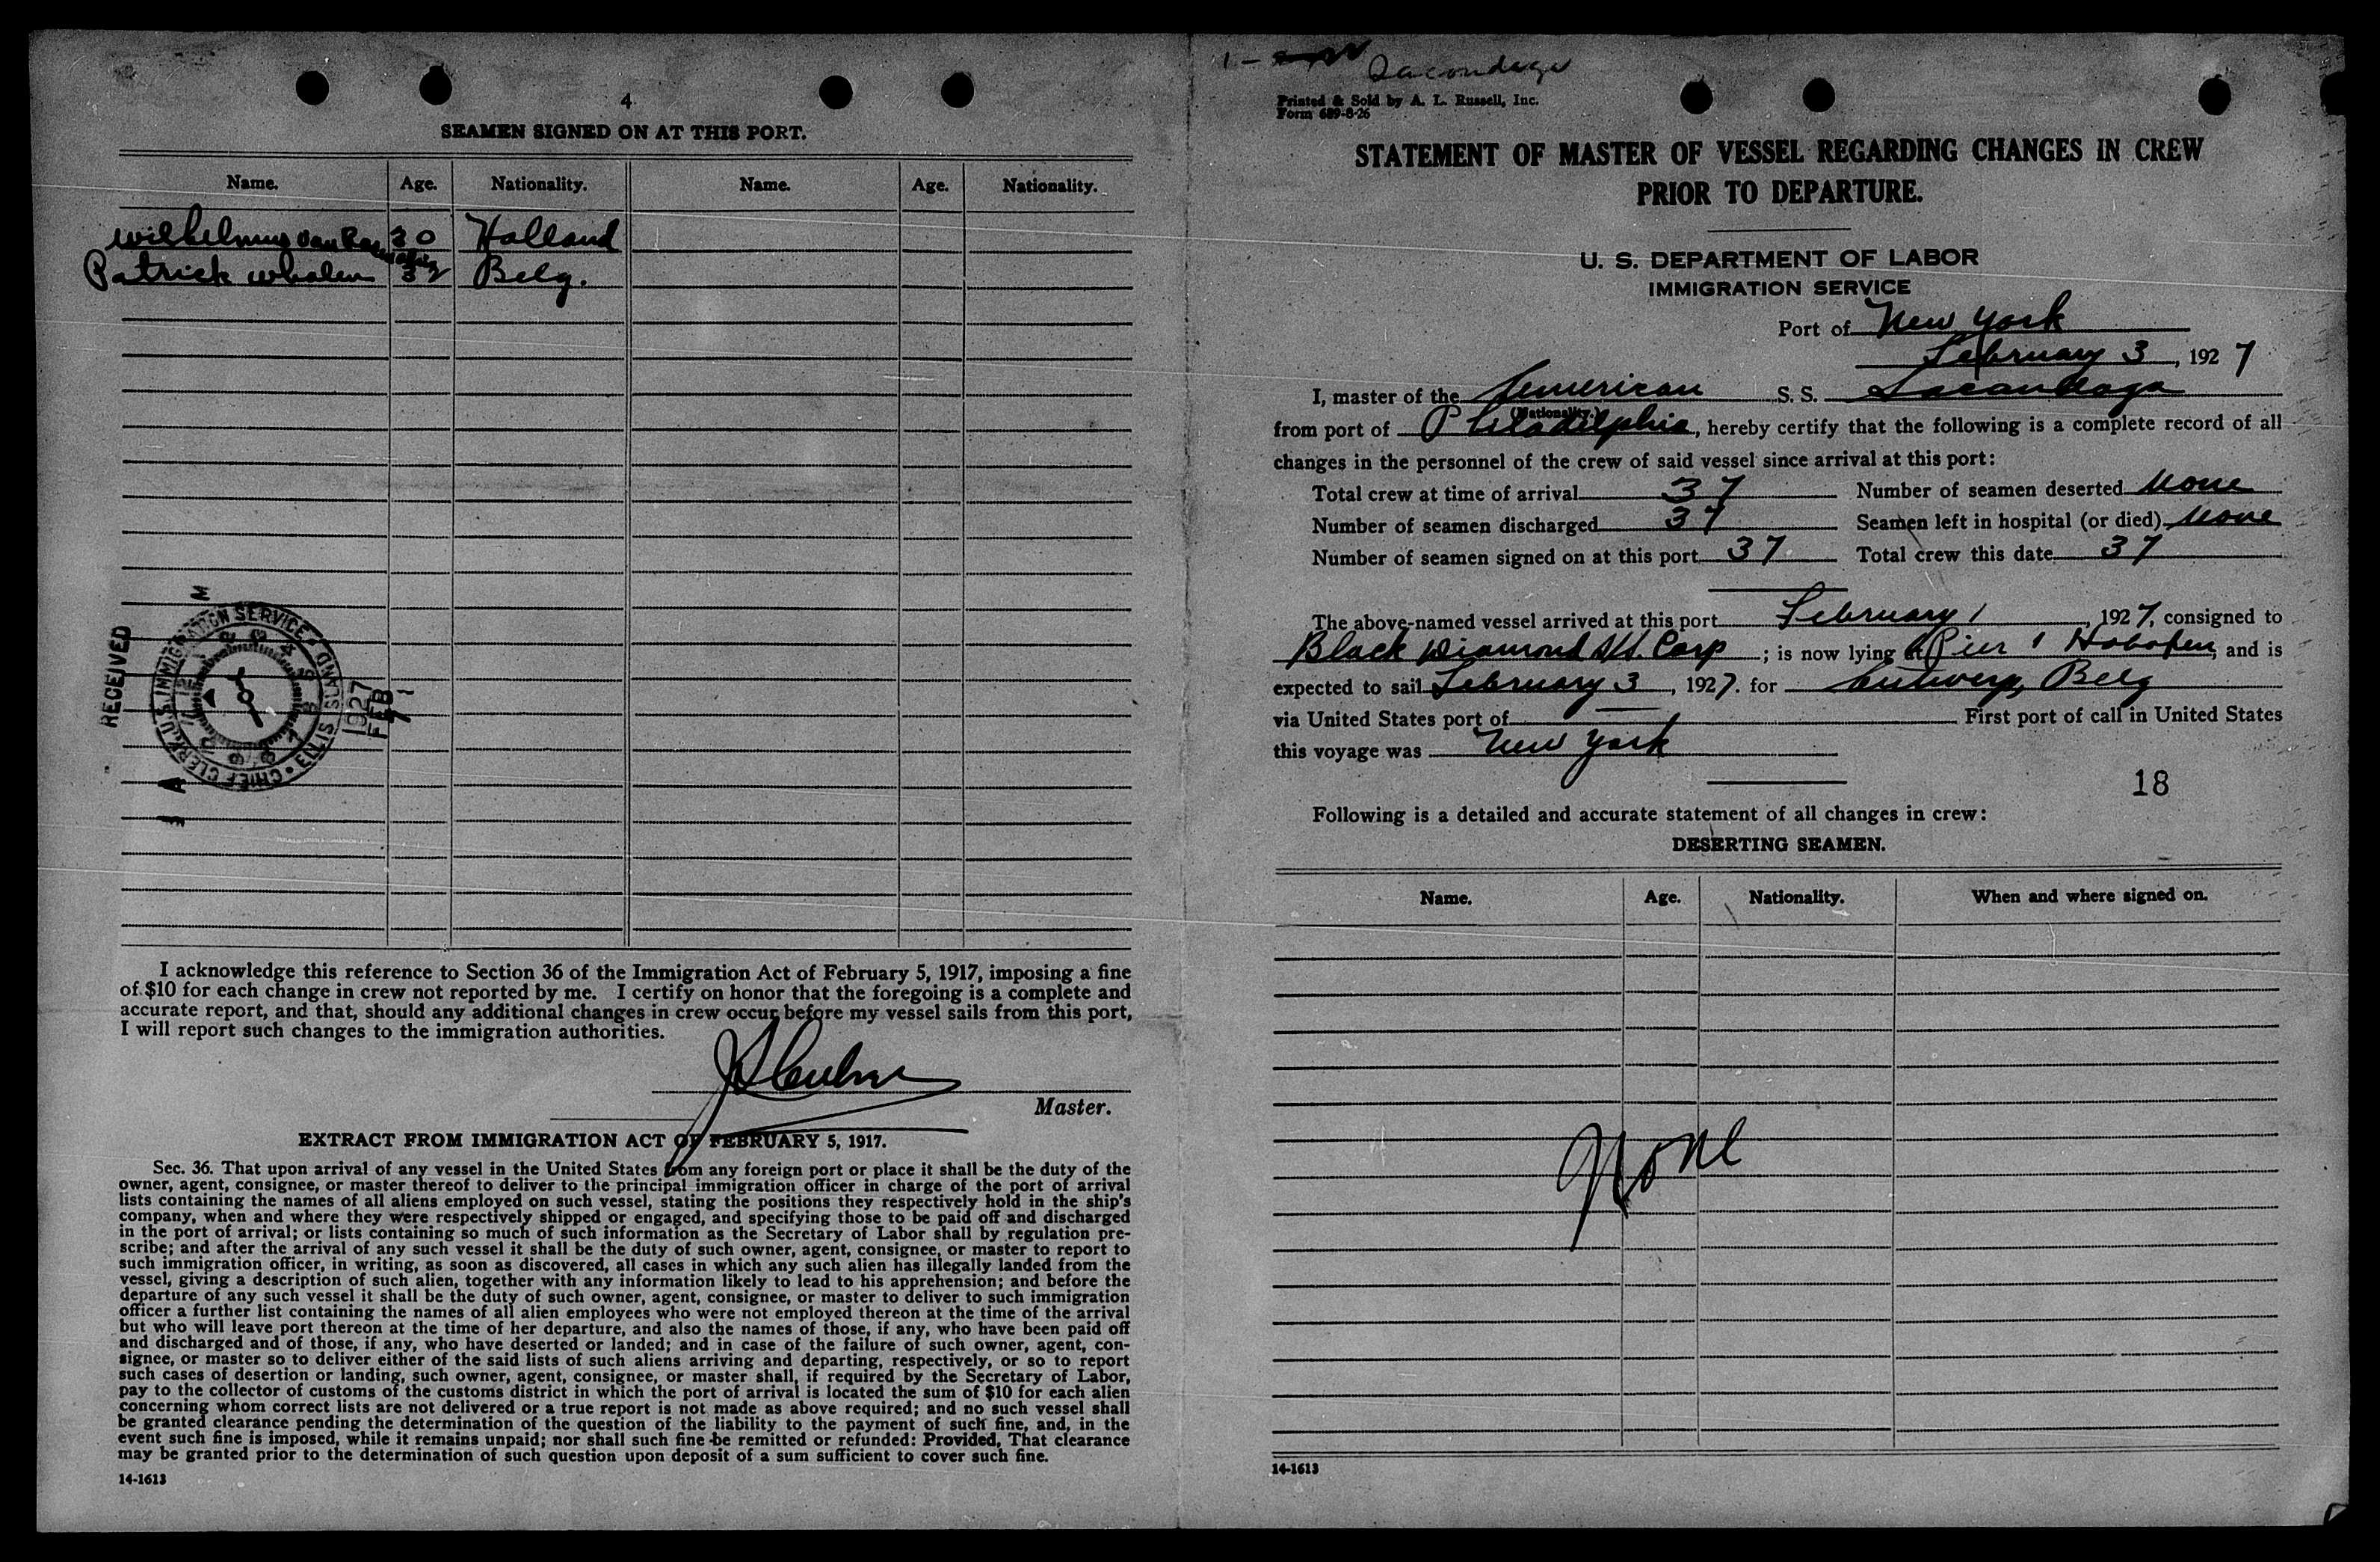 4
SEAMEN SIGNED ON AT THIS PORT.
Name. Age. Nationality. Name. Age. Nationality.
Wilhelmus van 20 Holland
Patrick Whalen 32 Belg.
RECEIVED
U.S. IMMIGRATION SERVICE • ELLIS ISLAND • CHIEF CLERK
1927
FEB
I acknowledge this reference to Section 36 of the Immigration Act of February 5, 1917, imposing a fine
of $10 for each change in crew not reported by me. I certify on honor that the foregoing is a complete and
accurate report, and that, should any additional changes in crew occur before my vessel sails from this port,
I will report such changes to the immigration authorities.
Master.
EXTRACT FROM IMMIGRATION ACT OF FEBRUARY 5, 1917.
Sec. 36. That upon arrival of any vessel in the United States from any foreign port or place it shall be the duty of the
owner, agent, consignee, or master thereof to deliver to the principal immigration officer in charge of the port of arrival
lists containing the names of all aliens employed on such vessel, stating the positions they respectively hold in the ship's
company, when and where they were respectively shipped or engaged, and specifying those to be paid off and discharged
in the port of arrival; or lists containing so much of such information as the Secretary of Labor shall by regulation pre-
scribe; and after the arrival of any such vessel it shall be the duty of such owner, agent, consignee, or master to report to
such immigration officer, in writing, as soon as discovered, all cases in which any such alien has illegally landed from the
vessel, giving a description of such alien, together with any information likely to lead to his apprehension; and before the
departure of any such vessel it shall be the duty of such owner, agent, consignee, or master to deliver to such immigration
officer a further list containing the names of all alien employees who were not employed thereon at the time of the arrival
but who will leave port thereon at the time of her departure, and also the names of those, if any, who have been paid off
and discharged and of those, if any, who have deserted or landed; and in case of the failure of such owner, agent, con-
signee, or master so to deliver either of the said lists of such aliens arriving and departing, respectively, or so to report
such cases of desertion or landing, such owner, agent, consignee, or master shall, if required by the Secretary of Labor,
pay to the collector of customs of the customs district in which the port of arrival is located the sum of $10 for each alien
concerning whom correct lists are not delivered or a true report is not made as above required; and no such vessel shall
be granted clearance pending the determination of the question of the liability to the payment of such fine, and, in the
event such fine is imposed, while it remains unpaid; nor shall such fine be remitted or refunded: Provided, That clearance
may be granted prior to the determination of such question upon deposit of a sum sufficient to cover such fine.
14-1613
Sacondaga
Printed & Sold by A. L. Russell, Inc.
Form 689-8-26
STATEMENT OF MASTER OF VESSEL REGARDING CHANGES IN CREW
PRIOR TO DEPARTURE.
U. S. DEPARTMENT OF LABOR
IMMIGRATION SERVICE
Port of New York
February 3, 1927
I, master of the American S. S. Sacandaga
(Nationality.)
from port of Philadelphia, hereby certify that the following is a complete record of all
changes in the personnel of the crew of said vessel since arrival at this port:
Total crew at time of arrival 37 Number of seamen deserted None
Number of seamen discharged 37 Seamen left in hospital (or died) None
Number of seamen signed on at this port 37 Total crew this date 37
The above-named vessel arrived at this port February 1 1927, consigned to
Black Diamond SS. Corp; is now lying at Pier 1 Hoboken, and is
expected to sail February 3, 1927. for Antwerp, Belg
via United States port of — First port of call in United States
this voyage was New York
18
Following is a detailed and accurate statement of all changes in crew:
DESERTING SEAMEN.
Name. Age. Nationality. When and where signed on.
None
14-1613